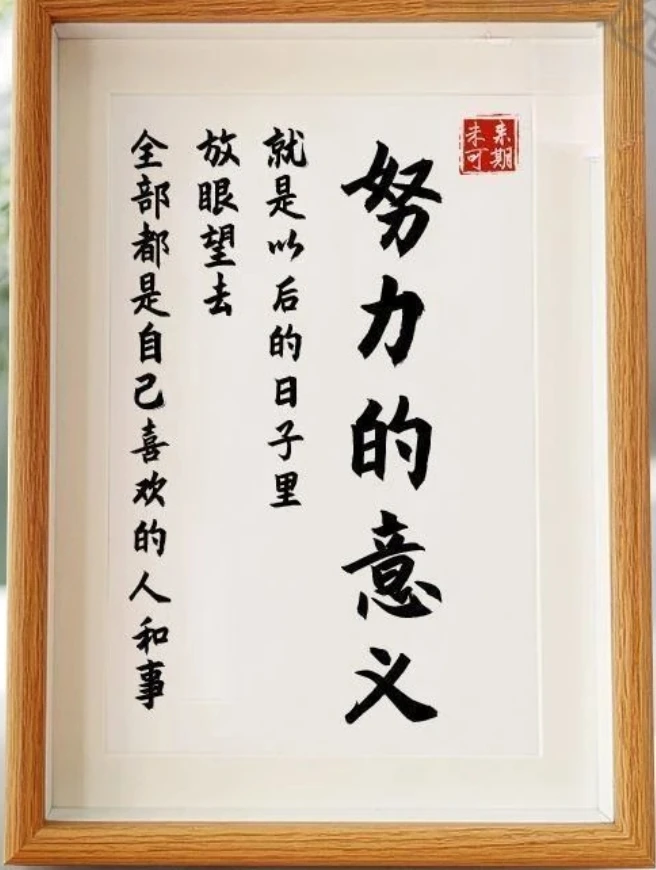 来期
未可
努力的意义
就是以后的日子里
放眼望去
全部都是自己喜欢的人和事